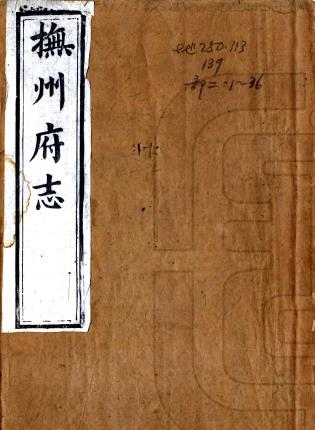 撫州府志
史地250.113
139
部二:1~36